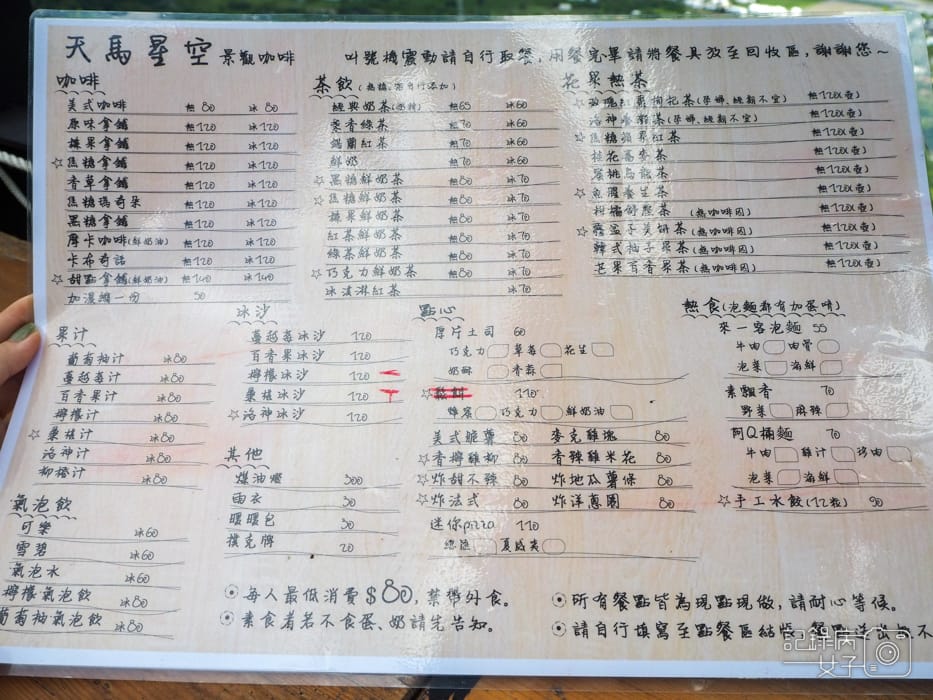 天馬星空 景觀咖啡
叫號機震動請自行取餐,用餐完畢請將餐具放至回收區,謝謝您~
咖啡
美式咖啡 熱80 冰80
原味拿鋪 熱120 冰120
榛果拿鋪 熱120 冰120
☆焦糖拿鋪 熱120 冰120
香草拿鋪 熱120 冰120
焦糖瑪奇朵 熱120 冰120
黑糖拿鋪 熱120 冰120
摩卡咖啡(鮮奶油) 熱120 冰120
卡布奇諾 熱120 冰120
☆甜點拿鋪(鮮奶油) 熱140 冰140
加濃縮一份 50
茶飲
經典奶茶 熱65 冰60
熱70 冰60
錫蘭紅茶 熱70 冰60
鮮奶 熱70 冰60
☆黑糖鮮奶茶 熱80 冰70
☆焦糖鮮奶茶 熱80 冰70
榛果鮮奶茶 熱80 冰70
紅茶鮮奶茶 熱80 冰70
綠茶鮮奶茶 熱80 冰70
☆巧克力鮮奶茶 熱80 冰70
冰淇淋紅茶 冰70
花果熱茶
☆玫瑰紅棗枸杞茶(孕婦、經期不宜) 熱120(壺)
洛神 茶(孕婦、經期不宜) 熱120(壺)
☆焦糖蘋果紅茶 熱120(壺)
桂花蕎麥茶 熱120(壺)
蜜桃烏龍茶 熱120(壺)
☆ 養生茶 熱120(壺)
柑橘舒壓茶 (無咖啡因) 熱120(壺)
☆ 美妍茶 (無咖啡因) 熱120(壺)
韓式柚子果茶 (無咖啡因) 熱120(壺)
芒果百香果茶 (無咖啡因) 熱120(壺)
果汁
葡萄柚汁 冰80
蔓越莓汁 冰80
百香果汁 冰80
檸檬汁 冰80
☆桑椹汁 冰80
洛神汁 冰80
柳橙汁 冰80
氣泡飲
可樂 冰60
雪碧 冰60
氣泡水 冰60
檸檬氣泡飲 冰80
葡萄柚氣泡飲 冰80
冰沙
蔓越莓冰沙 120
百香果冰沙 120
檸檬冰沙 120
桑椹冰沙 120
☆洛神冰沙 120
其他
煤油燈 300
雨衣 30
暖暖包 30
撲克牌 20
點心
厚片土司 60
巧克力 草莓 花生
奶酥 香蒜
☆鬆餅 110
蜂蜜 巧克力 鮮奶油
美式脆薯 80 麥克雞塊 80
☆香檸雞柳 80 香辣雞米花 80
☆炸甜不辣 80 炸地瓜薯條 80
☆炸法式 80 炸洋蔥圈 80
迷你pizza 110
總匯 夏威夷
熱食(泡麵都有加蛋唷)
來一客泡麵 55
牛肉 肉骨
泡菜 海鮮
素飄香 70
野菜 麻辣
阿Q桶麵 70
牛肉 雞汁 珍肉
泡菜 海鮮
☆手工水餃(12粒) 90
⊙每人最低消費$80,禁帶外食。
⊙素食者若不食蛋、奶請先告知。
⊙所有餐點皆為現點現做,請耐心等候。
⊙請自行填寫至點餐區結帳,餐點送出恕不
記錄病女子